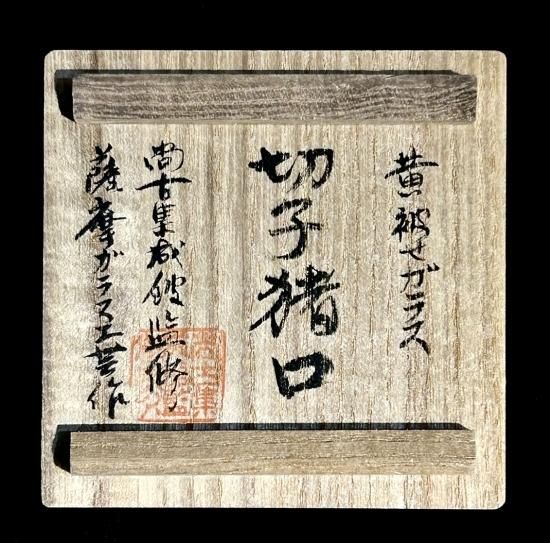 黄被せガラス
切子猪口
尚古集成館監修
薩摩ガラス工芸作